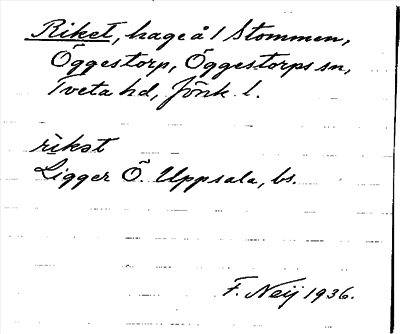 Riket, hage å 1 Stommen,
Öggestorp, Öggestorps sn,
Tveta hd, Jönk. l.
rikət
Ligger Ö. Uppsala, bs.
F. Neij 1936.